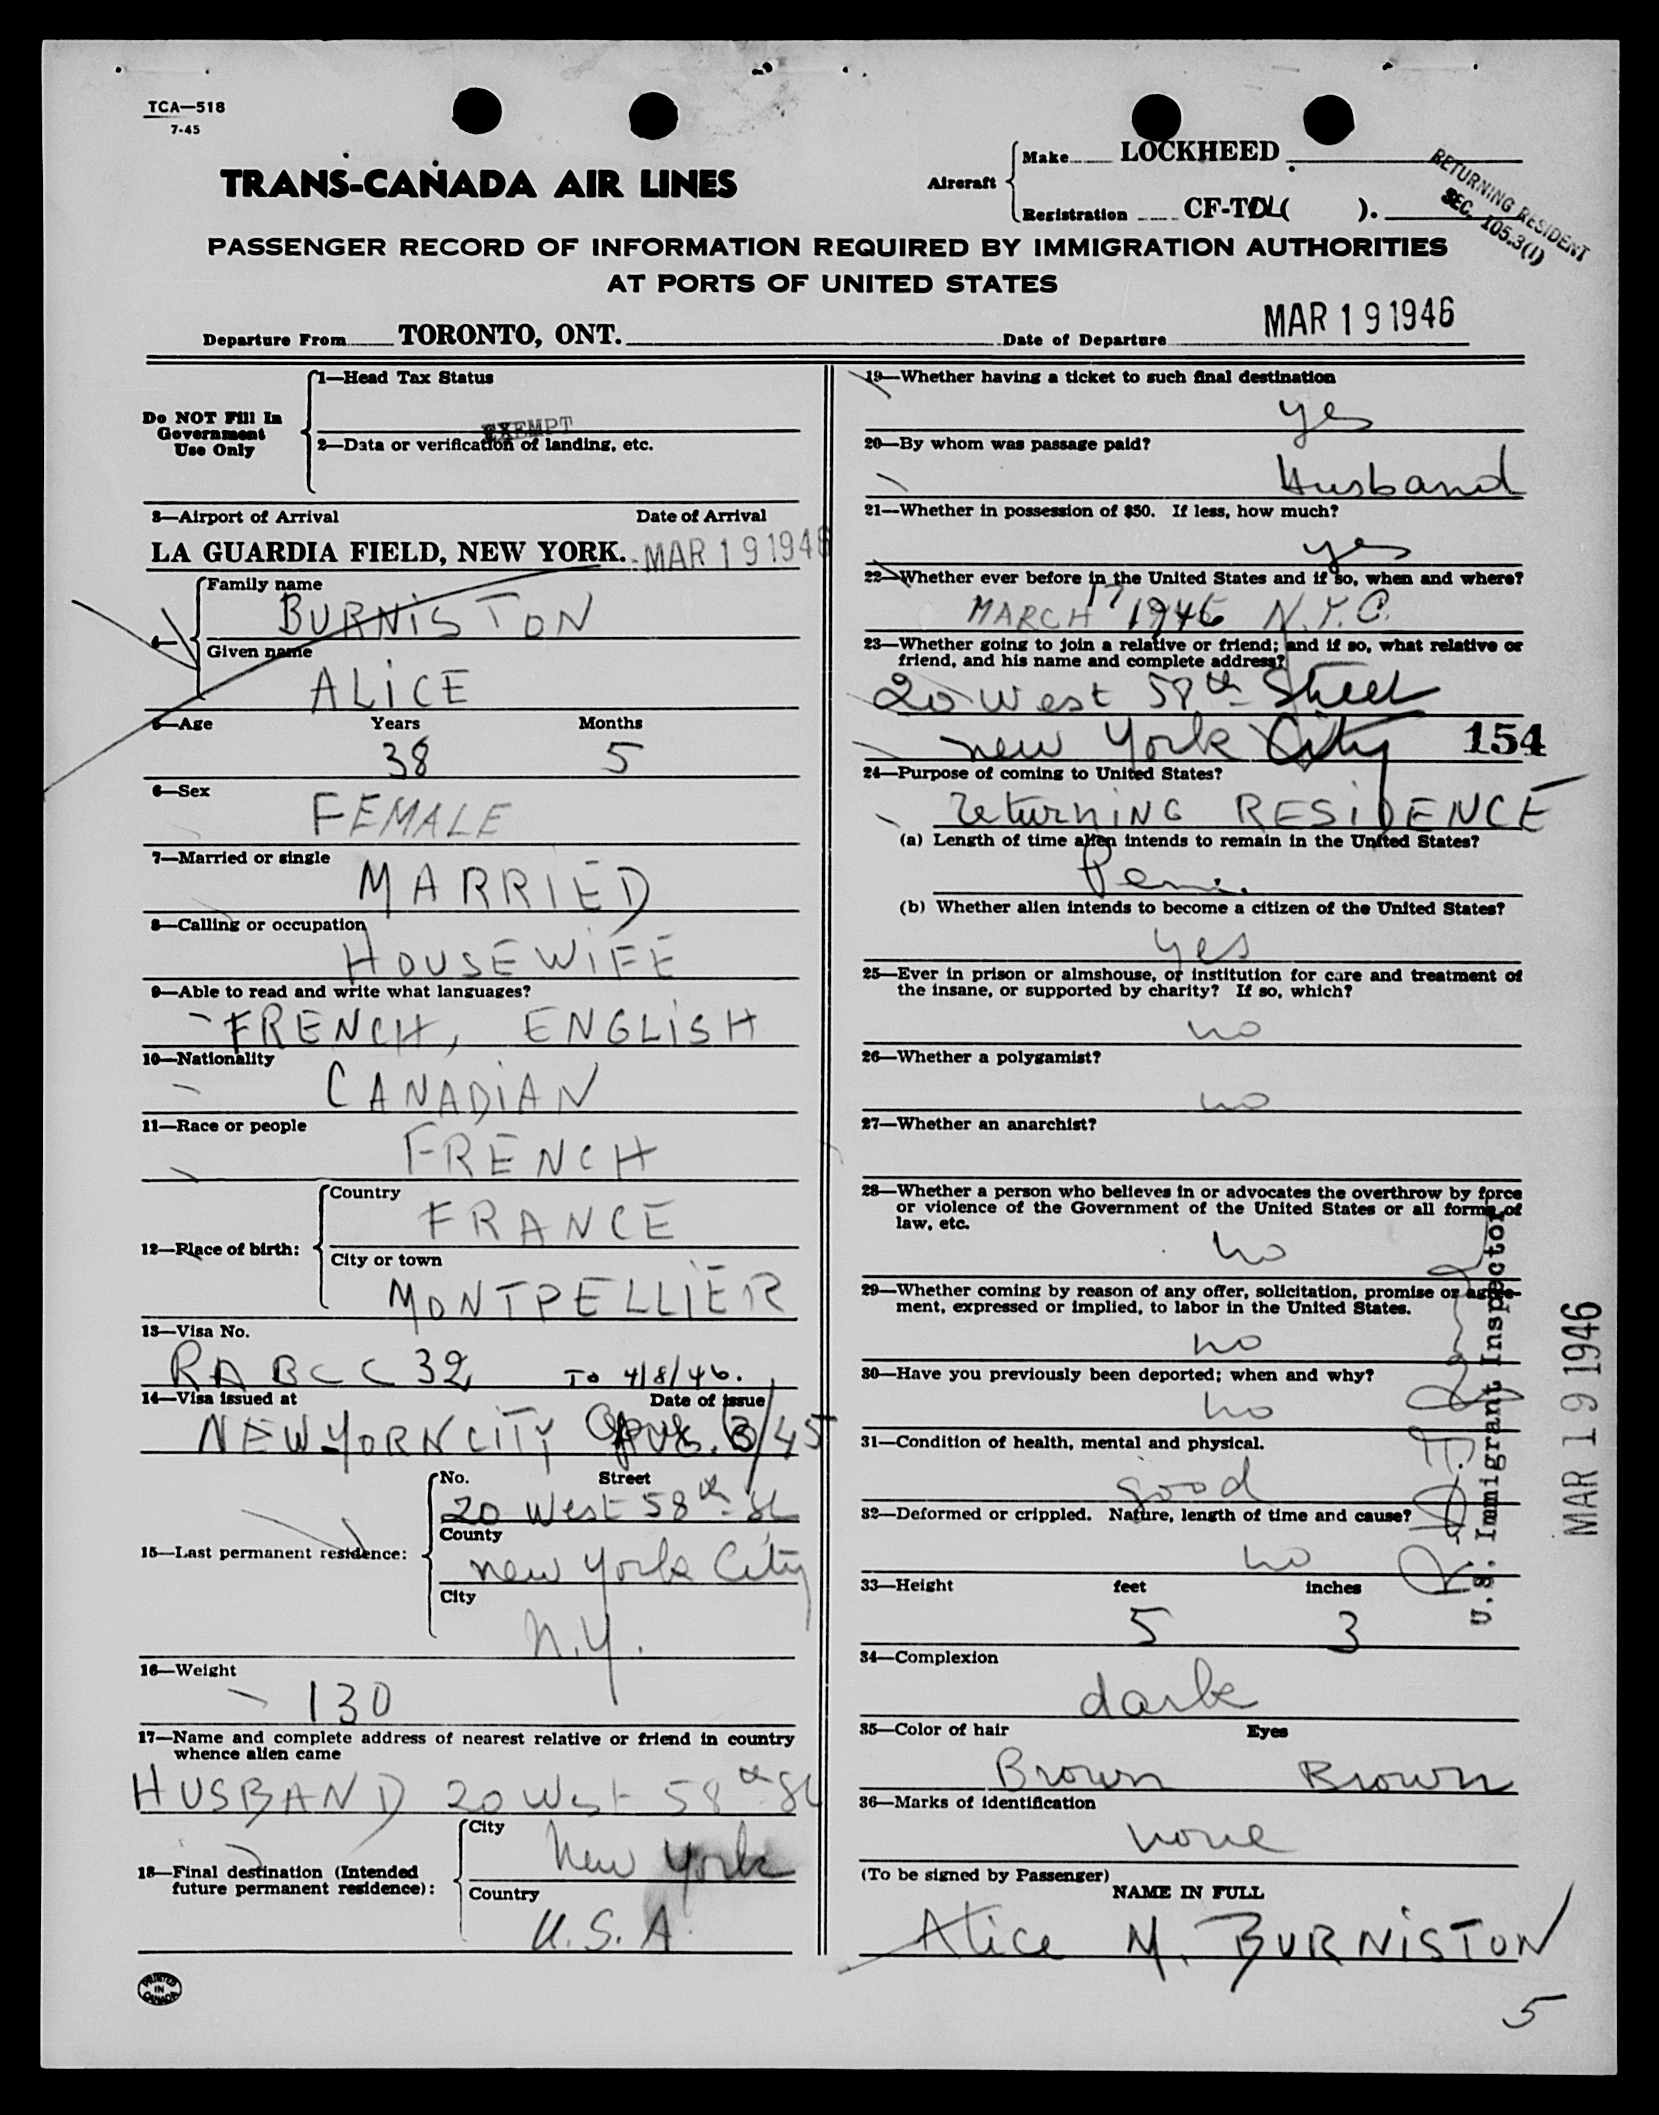 TCA—518
7-45
TRANS-CANADA AIR LINES
Aircraft
Make LOCKHEED
Registration CF-TDL( ).
RETURNING RESIDENT
SEC. 105.3(1)
PASSENGER RECORD OF INFORMATION REQUIRED BY IMMIGRATION AUTHORITIES
AT PORTS OF UNITED STATES
Departure From TORONTO, ONT. Date of Departure MAR 19 1946
Do NOT Fill In
Government
Use Only
1—Head Tax Status
EXEMPT
2—Data or verification of landing, etc.
3—Airport of Arrival Date of Arrival
LA GUARDIA FIELD, NEW YORK. MAR 19 1946
4—
Family name
BURNISTON
Given name
ALICE
5—Age Years Months
38 5
6—Sex
FEMALE
7—Married or single
MARRIED
8—Calling or occupation
HOUSEWIFE
9—Able to read and write what languages?
FRENCH, ENGLISH
10—Nationality
CANADIAN
11—Race or people
FRENCH
12—Place of birth:
Country
FRANCE
City or town
MONTPELLIER
13—Visa No.
RABCC 32 To 4/8/46.
14—Visa issued at Date of issue
NEW YORK CITY /45
15—Last permanent residence:
No. Street
20 West 58th St
County
new york City
City
N.Y.
16—Weight
130
17—Name and complete address of nearest relative or friend in country
whence alien came
HUSBAND 20 West 58th St
18—Final destination (Intended
future permanent residence):
City
New York
Country
U.S.A.
19—Whether having a ticket to such final destination
yes
20—By whom was passage paid?
Husband
21—Whether in possession of $50. If less, how much?
yes
22—Whether ever before in the United States and if so, when and where?
MARCH 17 1946 N.Y.C.
23—Whether going to join a relative or friend; and if so, what relative or
friend, and his name and complete address?
20 West 58th Street
new York City 154
24—Purpose of coming to United States?
returning RESIDENCE
(a) Length of time alien intends to remain in the United States?
Perm.
(b) Whether alien intends to become a citizen of the United States?
yes
25—Ever in prison or almshouse, or institution for care and treatment of
the insane, or supported by charity? If so, which?
no
26—Whether a polygamist?
no
27—Whether an anarchist?
28—Whether a person who believes in or advocates the overthrow by force
or violence of the Government of the United States or all forms of
law, etc.
no
29—Whether coming by reason of any offer, solicitation, promise or agree-
ment, expressed or implied, to labor in the United States.
no
30—Have you previously been deported; when and why?
no
31—Condition of health, mental and physical.
good
32—Deformed or crippled. Nature, length of time and cause?
no
33—Height feet inches
5 3
34—Complexion
dark
35—Color of hair Eyes
Brown Brown
36—Marks of identification
none
(To be signed by Passenger)
NAME IN FULL
Alice M. BURNISTON
U.S. Immigrant Inspector
MAR 19 1946
PRINTED
IN
CANADA
5